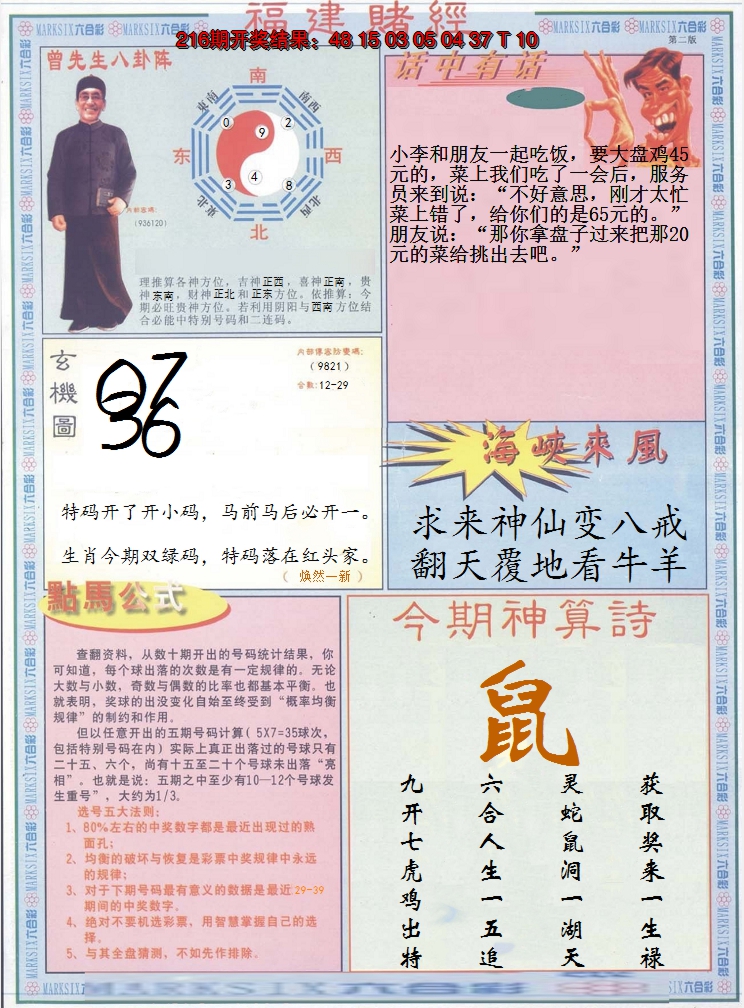 福建賭經
MARKSIX六合彩 MARKSIX六合彩 MARKSIX六合彩 MARKSIX六合彩
216期开奖结果：48 15 03 05 04 37 T 10
第二版
曾先生八卦阵
南
东南
西南
东
西
东北
西北
北
0
9
2
3
4
8
内部密碼:
（936120）
理推算各神方位，吉神正西，喜神正南，贵
神东南，财神正北和正东方位。依推算：今
期必旺贵神方位。若利用阴阳与西南方位结
合必能中特别号码和二连码。
话中有话
小李和朋友一起吃饭，要大盘鸡45
元的，菜上我们吃了一会后，服务
员来到说：“不好意思，刚才太忙
菜上错了，给你们的是65元的。”
朋友说：“那你拿盘子过来把那20
元的菜给挑出去吧。”
玄機圖
07
36
（9821）
合数:12-29
特码开了开小码，马前马后必开一。
生肖今期双绿码，特码落在红头家。
（ 焕然一新 ）
海峽來風
求来神仙变八戒
翻天覆地看牛羊
點馬公式
查翻资料，从数十期开出的号码统计结果，你
可知道，每个球出落的次数是有一定规律的。无论
大数与小数，奇数与偶数的比率也都基本平衡。也
就表明，奖球的出没变化自始至终受到“概率均衡
规律”的制约和作用。
但以任意开出的五期号码计算( 5X7=35球次，
包括特别号码在内) 实际上真正出落过的号球只有
二十五、六个，尚有十五至二十个号球未出落“亮
相”。也就是说：五期之中至少有10—12个号球发
生重号”，大约为1/3。
选号五大法则:
1、80%左右的中奖数字都是最近出现过的熟
面孔；
2、均衡的破坏与恢复是彩票中奖规律中永远
的规律；
3、对于下期号码最有意义的数据是最近29-39
期间的中奖数字。
4、绝对不要机选彩票，用智慧掌握自己的选
择。
5、与其全盘猜测，不如先作排除。
今期神算詩
鼠
九开七虎鸡出特
六合人生一五追
灵蛇鼠洞一湖天
获取奖来一生禄